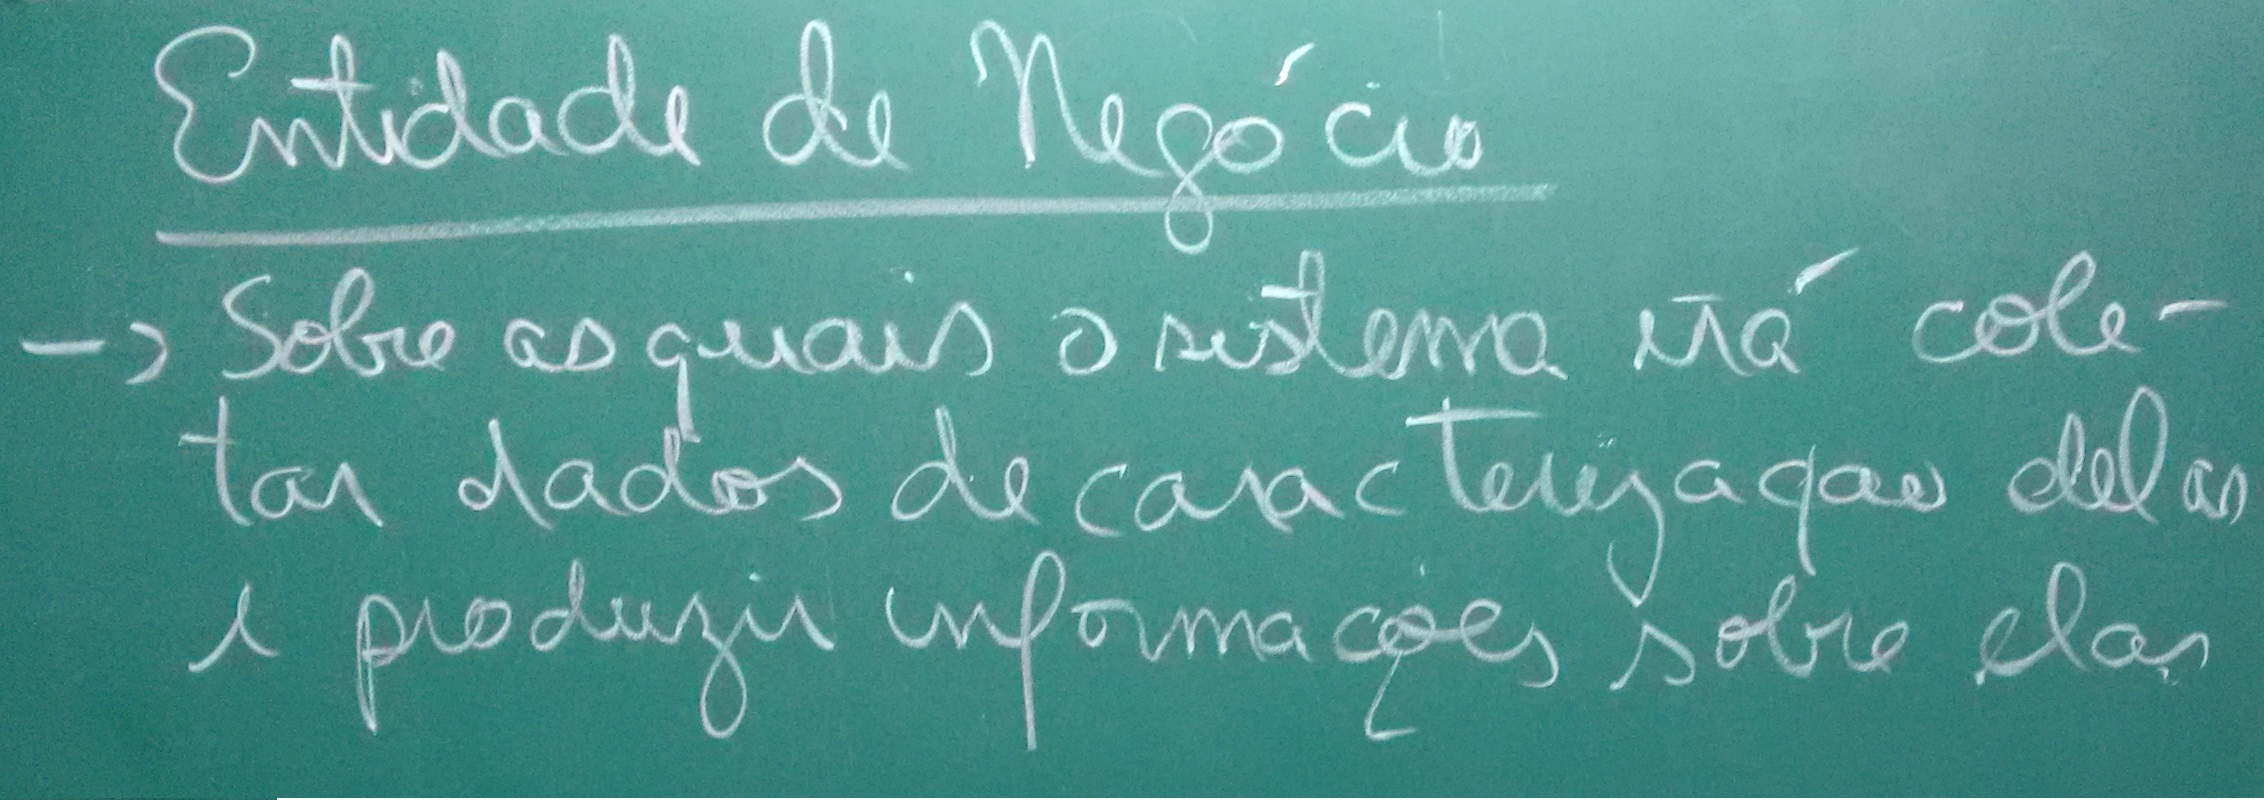 Entidade de Negócio
→ Sobre as quais o sistema irá cole-
tar dados de caracterizaçao delas
e produzir informações sobre elas